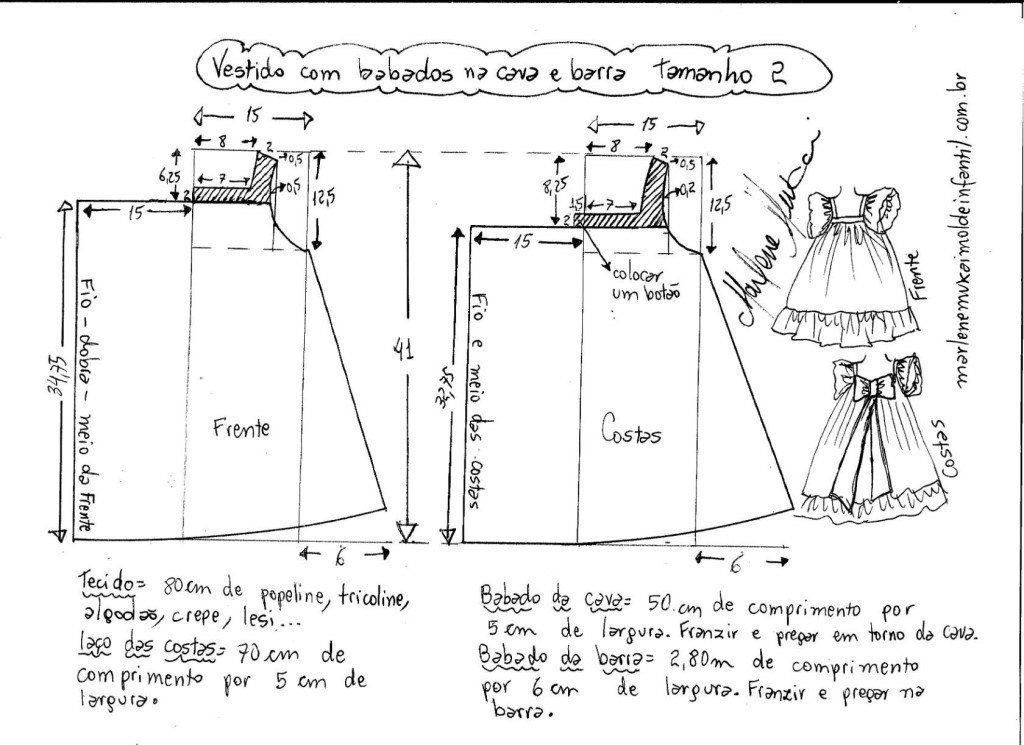 Vestido com babados na cava e barra tamanho 2
15
8
2
0,5
6,25
7
0,5
12,5
2
15
Fio - dobra - meio da Frente
34,75
Frente
6
41
15
8
2
0,5
8,25
7
0,2
12,5
1,5
2
15
colocar
um botão
Fio e meio das costas
32,75
Costas
6
Frente
Costas
marlenemukaimoldeinfantil.com.br
Tecido= 80cm de popeline, tricoline,
algodão, crepe, lesi...
laço das costas= 70cm de
comprimento por 5 cm de
largura.
Babado da cava= 50 cm de comprimento por
5 cm de largura. Franzir e pregar em torno da cava.
Babado da barra= 2,80m de comprimento
por 6 cm de largura. Franzir e pregar na
barra.